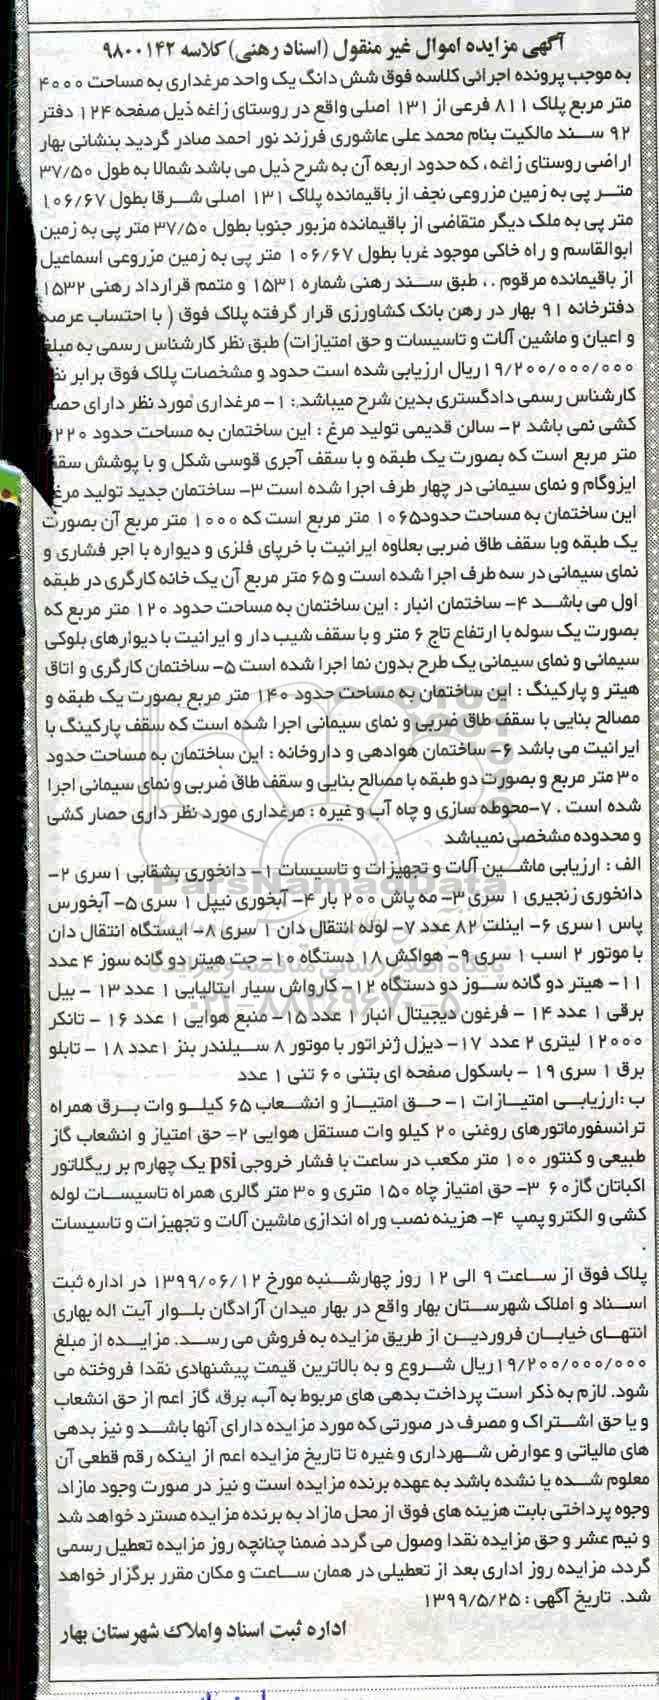 آگهی مزایده اموال غیر منقول (اسناد رهنی) کلاسه ۹۸۰۰۱۴۲
به موجب پرونده اجرائی کلاسه فوق شش دانگ یک واحد مرغداری به مساحت ۴۰۰۰
متر مربع پلاک ۸۱۱ فرعی از ۱۳۱ اصلی واقع در روستای زاغه ذیل صفحه ۱۲۴ دفتر
۹۲ سند مالکیت بنام محمد علی عاشوری فرزند نور احمد صادر گردید بنشانی بهار
اراضی روستای زاغه، که حدود اربعه آن به شرح ذیل می باشد شمالا به طول ۳۷/۵۰
متر پی به زمین مزروعی نجف از باقیمانده پلاک ۱۳۱ اصلی شرقا بطول ۱۰۶/۶۷
متر پی به ملک دیگر متقاضی از باقیمانده مزبور جنوبا بطول ۳۷/۵۰ متر پی به زمین
ابوالقاسم و راه خاکی موجود غربا بطول ۱۰۶/۶۷ متر پی به زمین مزروعی اسماعیل
از باقیمانده مرقوم . ، طبق سند رهنی شماره ۱۵۳۱ و متمم قرارداد رهنی ۱۵۳۲
دفترخانه ۹۱ بهار در رهن بانک کشاورزی قرار گرفته پلاک فوق ( با احتساب عرصه
و اعیان و ماشین آلات و تاسیسات و حق امتیازات) طبق نظر کارشناس رسمی به مبلغ
۱۹/۲۰۰/۰۰۰/۰۰۰ریال ارزیابی شده است حدود و مشخصات پلاک فوق برابر
کارشناس رسمی دادگستری بدین شرح میباشد.: ۱- مرغداری مورد نظر دارای
کشی نمی باشد ۲- سالن قدیمی تولید مرغ : این ساختمان به مساحت حدود
متر مربع است که بصورت یک طبقه و با سقف آجری قوسی شکل و با پوشش سقف
ایزوگام و نمای سیمانی در چهار طرف اجرا شده است ۳- ساختمان جدید تولید مرغ
این ساختمان به مساحت حدود۱۰۶۵ متر مربع است که ۱۰۰۰ متر مربع آن بصورت
یک طبقه وبا سقف طاق ضربی بعلاوه ایرانیت با خرپای فلزی و دیواره با اجر فشاری و
نمای سیمانی در سه طرف اجرا شده است و ۶۵ متر مربع آن یک خانه کارگری در طبقه
اول می باشد ۴- ساختمان انبار : این ساختمان به مساحت حدود ۱۲۰ متر مربع که
بصورت یک سوله با ارتفاع تاج ۶ متر و با سقف شیب دار و ایرانیت با دیوارهای بلوکی
سیمانی و نمای سیمانی یک طرح بدون نما اجرا شده است ۵- ساختمان کارگری و اتاق
هیتر و پارکینگ : این ساختمان به مساحت حدود ۱۴۰ متر مربع بصورت یک طبقه و
مصالح بنایی با سقف طاق ضربی و نمای سیمانی اجرا شده است که سقف پارکینگ با
ایرانیت می باشد ۶- ساختمان هوادهی و داروخانه : این ساختمان به مساحت حدود
۳۰ متر مربع و بصورت دو طبقه با مصالح بنایی و سقف طاق ضربی و نمای سیمانی اجرا
شده است . ۷-محوطه سازی و چاه آب و غیره : مرغداری مورد نظر داری حصار کشی
و محدوده مشخصی نمیباشد
الف : ارزیابی ماشین آلات و تجهیزات و تاسیسات ۱- دانخوری بشقابی ۱سری ۲-
دانخوری زنجیری ۱ سری ۳- مه پاش ۲۰۰ بار ۴- آبخوری نیپل ۱ سری ۵- آبخورس
پاس ۱سری ۶- اینلت ۸۲ عدد ۷- لوله انتقال دان ۱ سری ۸- ایستگاه انتقال دان
با موتور ۲ اسب ۱ سری ۹- هواکش ۱۸ دستگاه ۱۰- جت هیتر دو گانه سوز ۴ عدد
۱۱- هیتر دو گانه سوز دو دستگاه ۱۲- کارواش سیار ایتالیایی ۱ عدد ۱۳ - بیل
برقی ۱ عدد ۱۴ - فرغون دیجیتال انبار ۱ عدد ۱۵- منبع هوایی ۱ عدد ۱۶ - تانکر
۱۲۰۰۰ لیتری ۲ عدد ۱۷- دیزل ژنراتور با موتور ۸ سیلندر بنز ۱عدد ۱۸ - تابلو
برق ۱ سری ۱۹ - باسکول صفحه ای بتنی ۶۰ تنی ۱ عدد
ب :ارزیابی امتیازات ۱- حق امتیاز و انشعاب ۶۵ کیلو وات برق همراه
ترانسفورماتورهای روغنی ۲۰ کیلو وات مستقل هوایی ۲- حق امتیاز و انشعاب گاز
طبیعی و کنتور ۱۰۰ متر مکعب در ساعت با فشار خروجی psi یک چهارم بر ریگلاتور
اکباتان گاز۶۰ ۳- حق امتیاز چاه ۱۵۰ متری و ۳۰ متر گالری همراه تاسیسات لوله
کشی و الکترو پمپ ۴- هزینه نصب وراه اندازی ماشین آلات و تجهیزات و تاسیسات
.
پلاک فوق از ساعت ۹ الی ۱۲ روز چهارشنبه مورخ ۱۳۹۹/۰۶/۱۲ در اداره ثبت
اسناد و املاک شهرستان بهار واقع در بهار میدان آزادگان بلوار آیت اله بهاری
انتهای خیابان فروردین از طریق مزایده به فروش می رسد. مزایده از مبلغ
۱۹/۲۰۰/۰۰۰/۰۰۰ریال شروع و به بالاترین قیمت پیشنهادی نقدا فروخته می
شود. لازم به ذکر است پرداخت بدهی های مربوط به آب، برق، گاز اعم از حق انشعاب
و یا حق اشتراک و مصرف در صورتی که مورد مزایده دارای آنها باشد و نیز بدهی
های مالیاتی و عوارض شهرداری و غیره تا تاریخ مزایده اعم از اینکه رقم قطعی آن
معلوم شده یا نشده باشد به عهده برنده مزایده است و نیز در صورت وجود مازاد،
وجوه پرداختی بابت هزینه های فوق از محل مازاد به برنده مزایده مسترد خواهد شد
و نیم عشر و حق مزایده نقدا وصول می گردد ضمنا چنانچه روز مزایده تعطیل رسمی
گردد، مزایده روز اداری بعد از تعطیلی در همان ساعت و مکان مقرر برگزار خواهد
شد. تاریخ آگهی : ۱۳۹۹/۵/۲۵
اداره ثبت اسناد واملاک شهرستان بهار